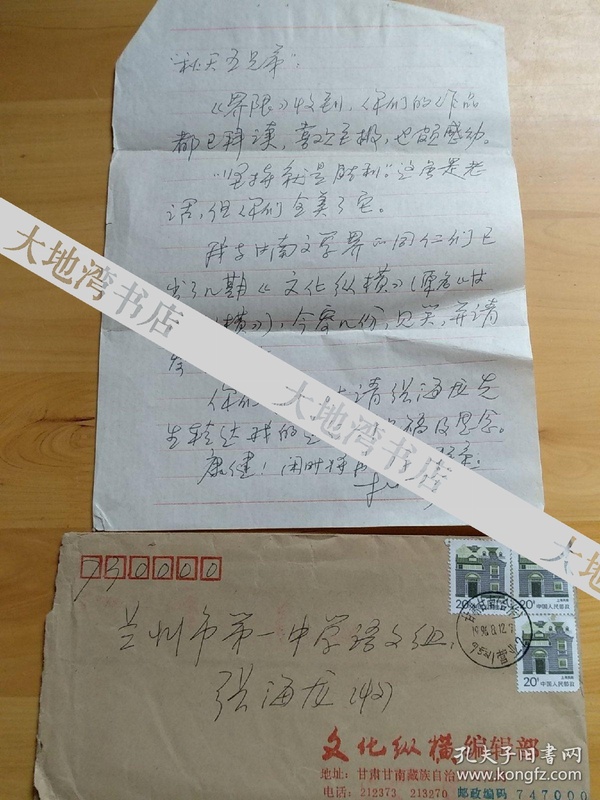 "秋天五兄弟":
《界限》收到，你们的作品
都已拜读，喜欢至极，也颇感动。
"坚持就是胜利"这虽是老
话，但你们全美了它。
甘南文学界的同仁们已
出了几期《文化纵横》(原名《甘
横》)，今寄几份，见笑，并请
你们 请张海龙先
生转达我的 福及思念。
康健！闲时
大地湾书店
大地湾书店
大地湾书店
730000
兰州市第一中学语文组:
张海龙(收)
20分
中国人民邮政
20分
中国人民邮政
20分
中国人民邮政
文化纵横编辑部
地址: 甘肃甘南藏族自治
电话: 212373 213270 邮政编码 747000
孔夫子旧书网
www.kongfz.com